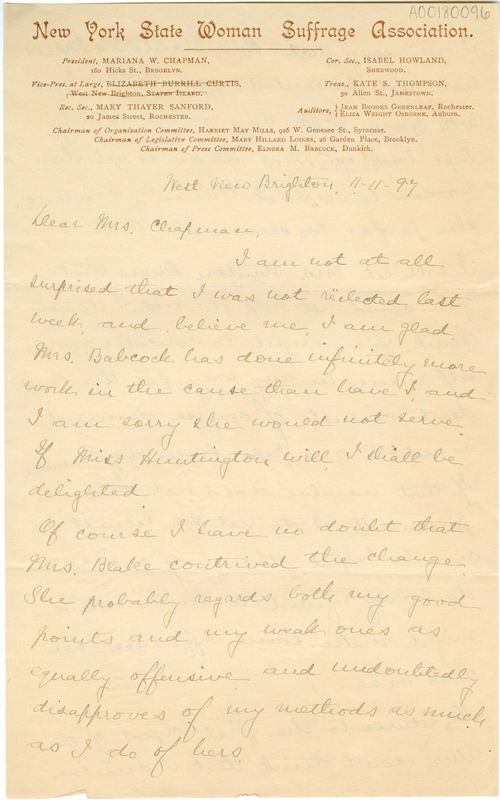 A00180096
New York State Woman Suffrage Association.
President, MARIANA W. CHAPMAN,
160 Hicks St., BROOKLYN.
Cor. Sec., ISABEL HOWLAND,
SHERWOOD.
Vice-Pres. at Large, ELIZABETH BURRILL CURTIS,
West New Brighton, STATEN ISLAND.
Treas., KATE S. THOMPSON,
30 Allen St., JAMESTOWN.
Rec. Sec., MARY THAYER SANFORD,
20 James Street, ROCHESTER.
Auditors, { JEAN BROOKS GREENLEAF, Rochester.
ELIZA WRIGHT OSBORNE, Auburn.
Chairman of Organization Committee, HARRIET MAY MILLS, 926 W. Genesee St., Syracuse.
Chairman of Legislative Committee, MARY HILLARD LOINES, 26 Garden Place, Brooklyn.
Chairman of Press Committee, ELNORA M. BABCOCK, Dunkirk.
West New Brighton, 11-11-97
Dear Mrs. Chapman,
I am not at all
surprised that I was not reëlected last
week and, believe me, I am glad.
Mrs. Babcock has done infinitely more
work in the cause than have I, and
I am sorry she would not serve.
If Miss Huntington will, I shall be
delighted.
Of course I have no doubt that
Mrs. Blake contrived the change.
She probably regards both my good
points and my weak ones as
equally offensive and undoubtedly
disapproves of my methods as much
as I do of hers.